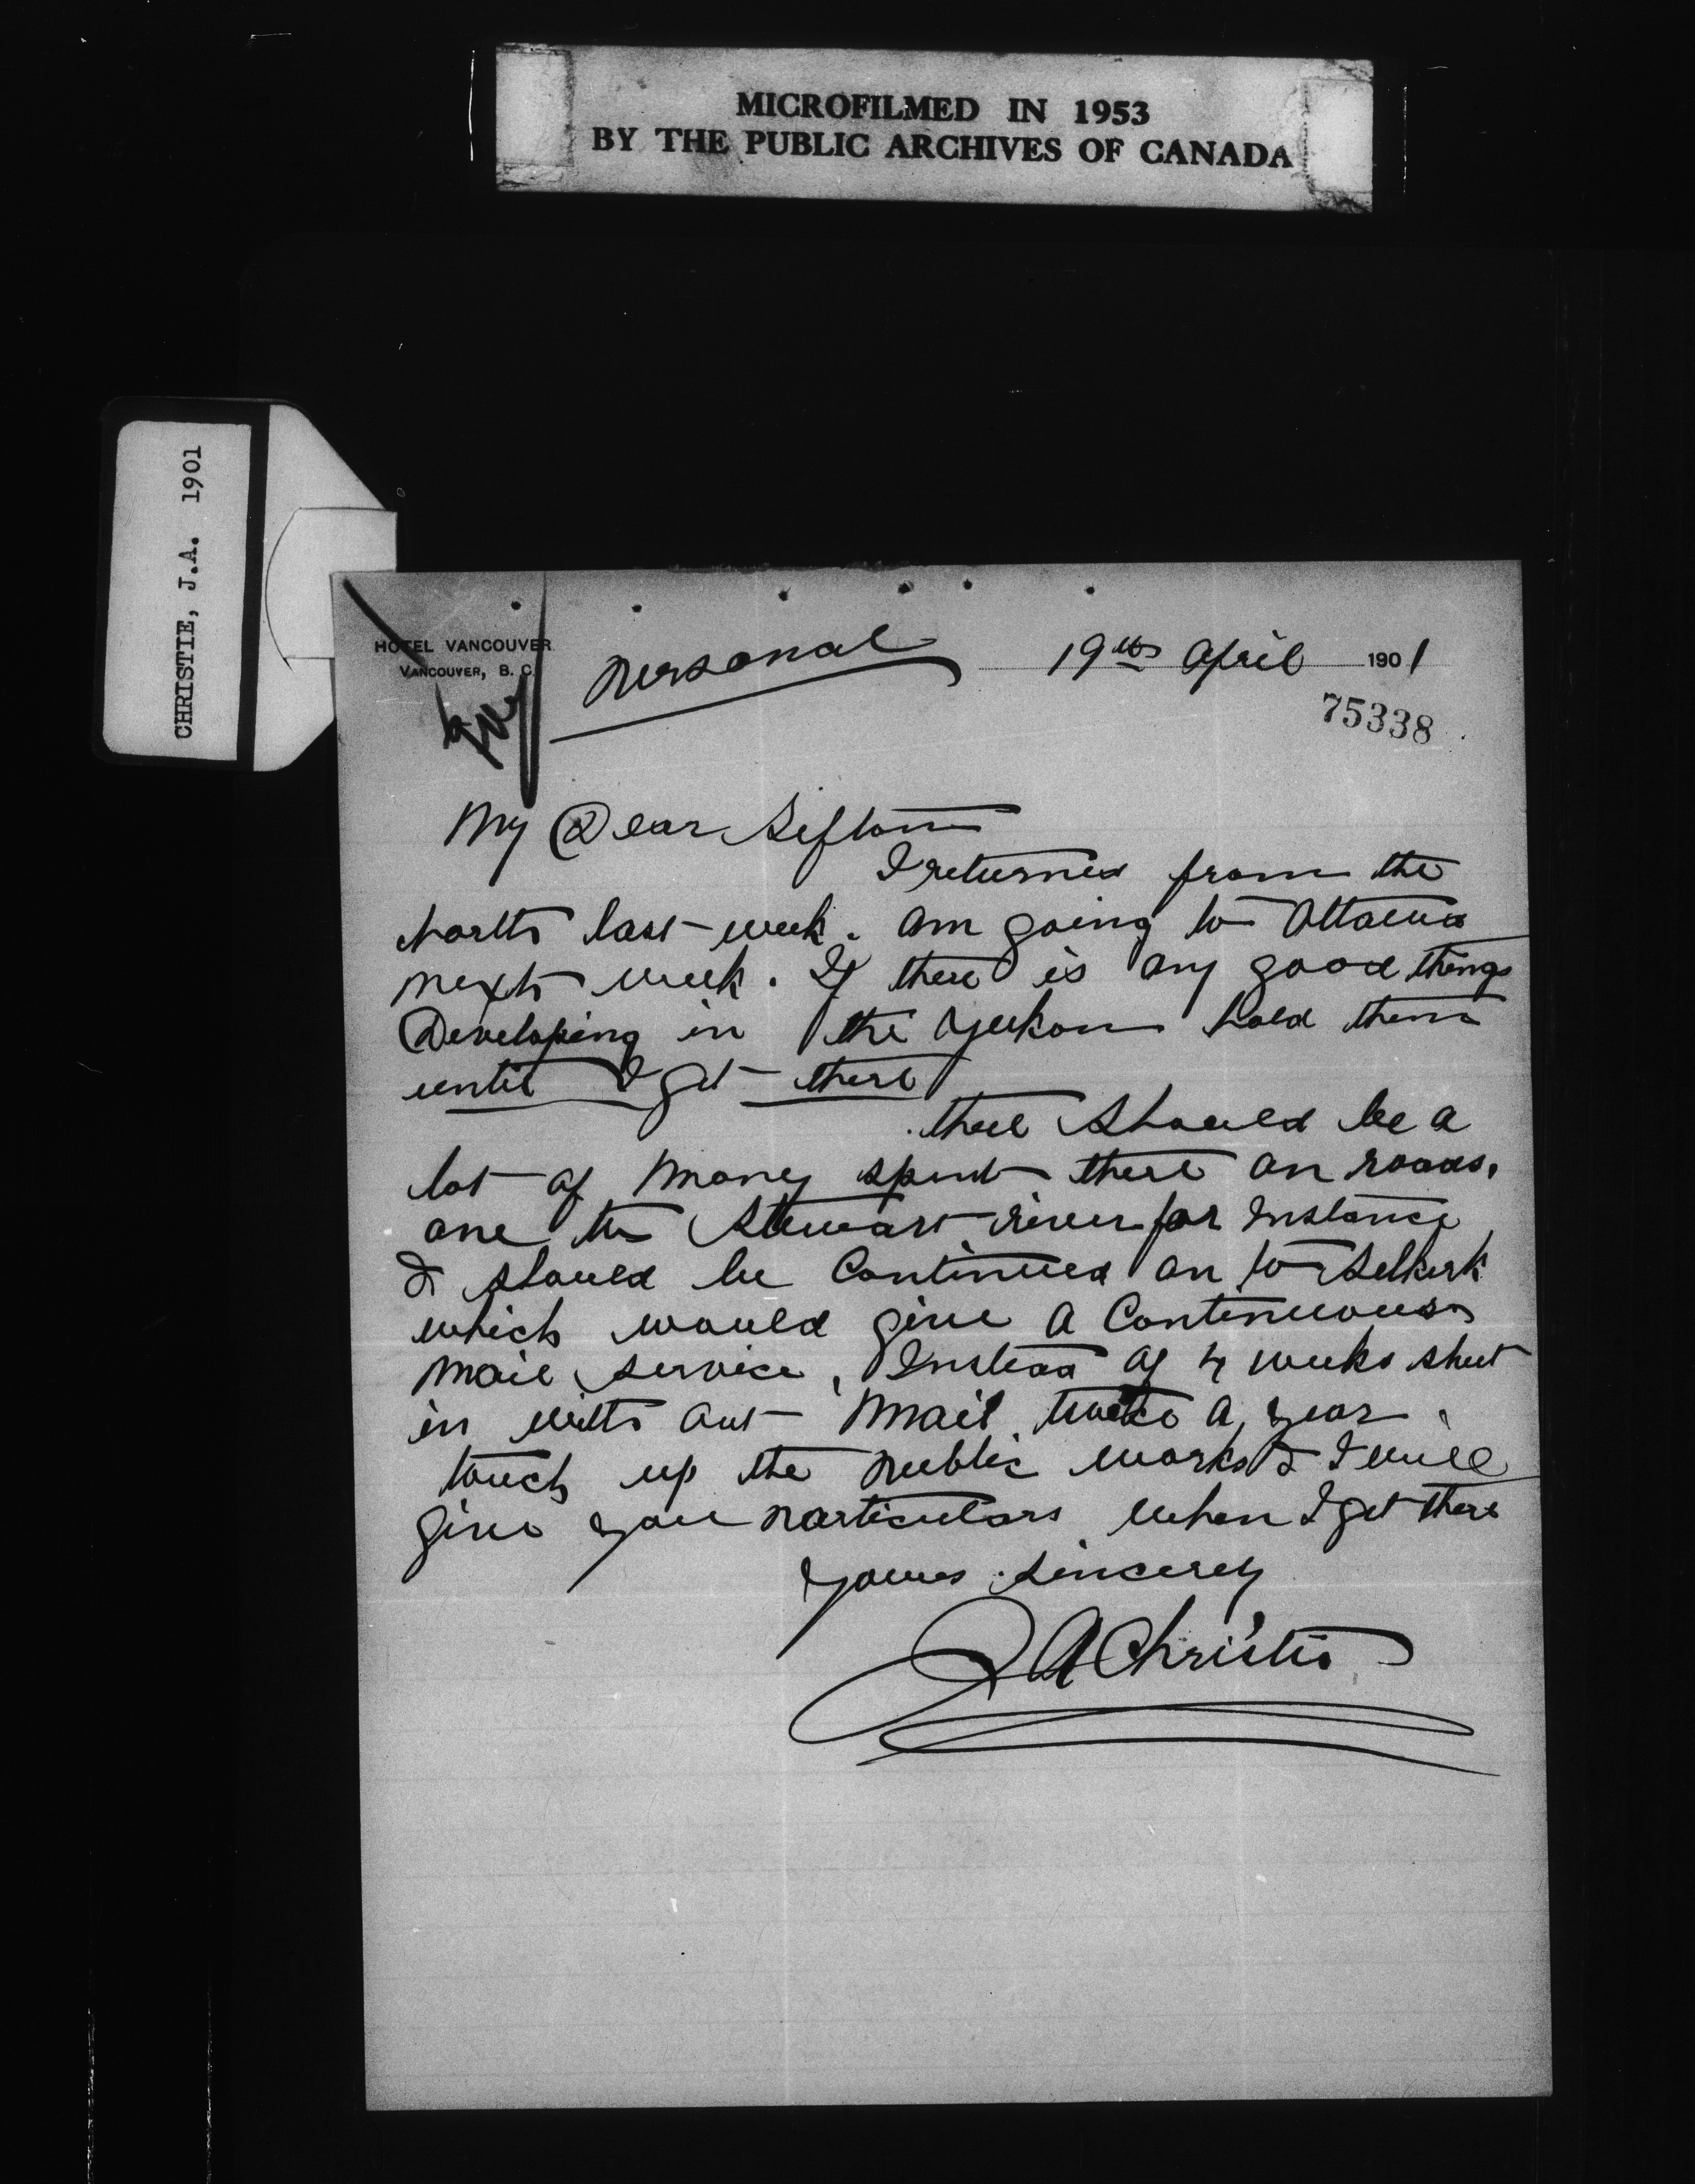 MICROFILMED IN 1953
BY THE PUBLIC ARCHIVES OF CANADA
CHRISTIE, J.A. 1901
HOTEL VANCOUVER
VANCOUVER, B. C.
Personal
19th April 1901
75338
My Dear Sifton
I returned from the
North last week. am going to Ottawa
next week. If there is any good things
Developing in the Yukon hold them
until I get there
there should be a
lot of money spent there on roads.
one to Stewart river for Instance
& should be Continued on to Selkirk
which would give a Continuous
mail service, Instead of 4 weeks shut
in with out mail twice a year.
touch up the public works & I will
give you particulars when I get there
Yours sincerely
J A Christie